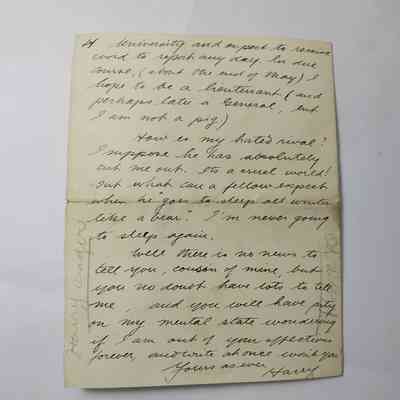 4 University and expect to receive
word to report any day. In due
course, (about the end of May) I
hope to be a lieutenant (and
perhaps later a General, but
I am not a pig)
How is my hated rival?
I suppose he has absolutely
cut me out. Its a cruel world!
But what can a fellow expect
when he "goes to sleep all winter
like a bear" I'm never going
to sleep again.
Well there is no news to
tell you, cousin of mine, but
you no doubt have lots to tell
me, and you will have pity
on my mental state wondering
if I am out of your affections
forever and write at once won't you
Yours as ever
Harry
Harry